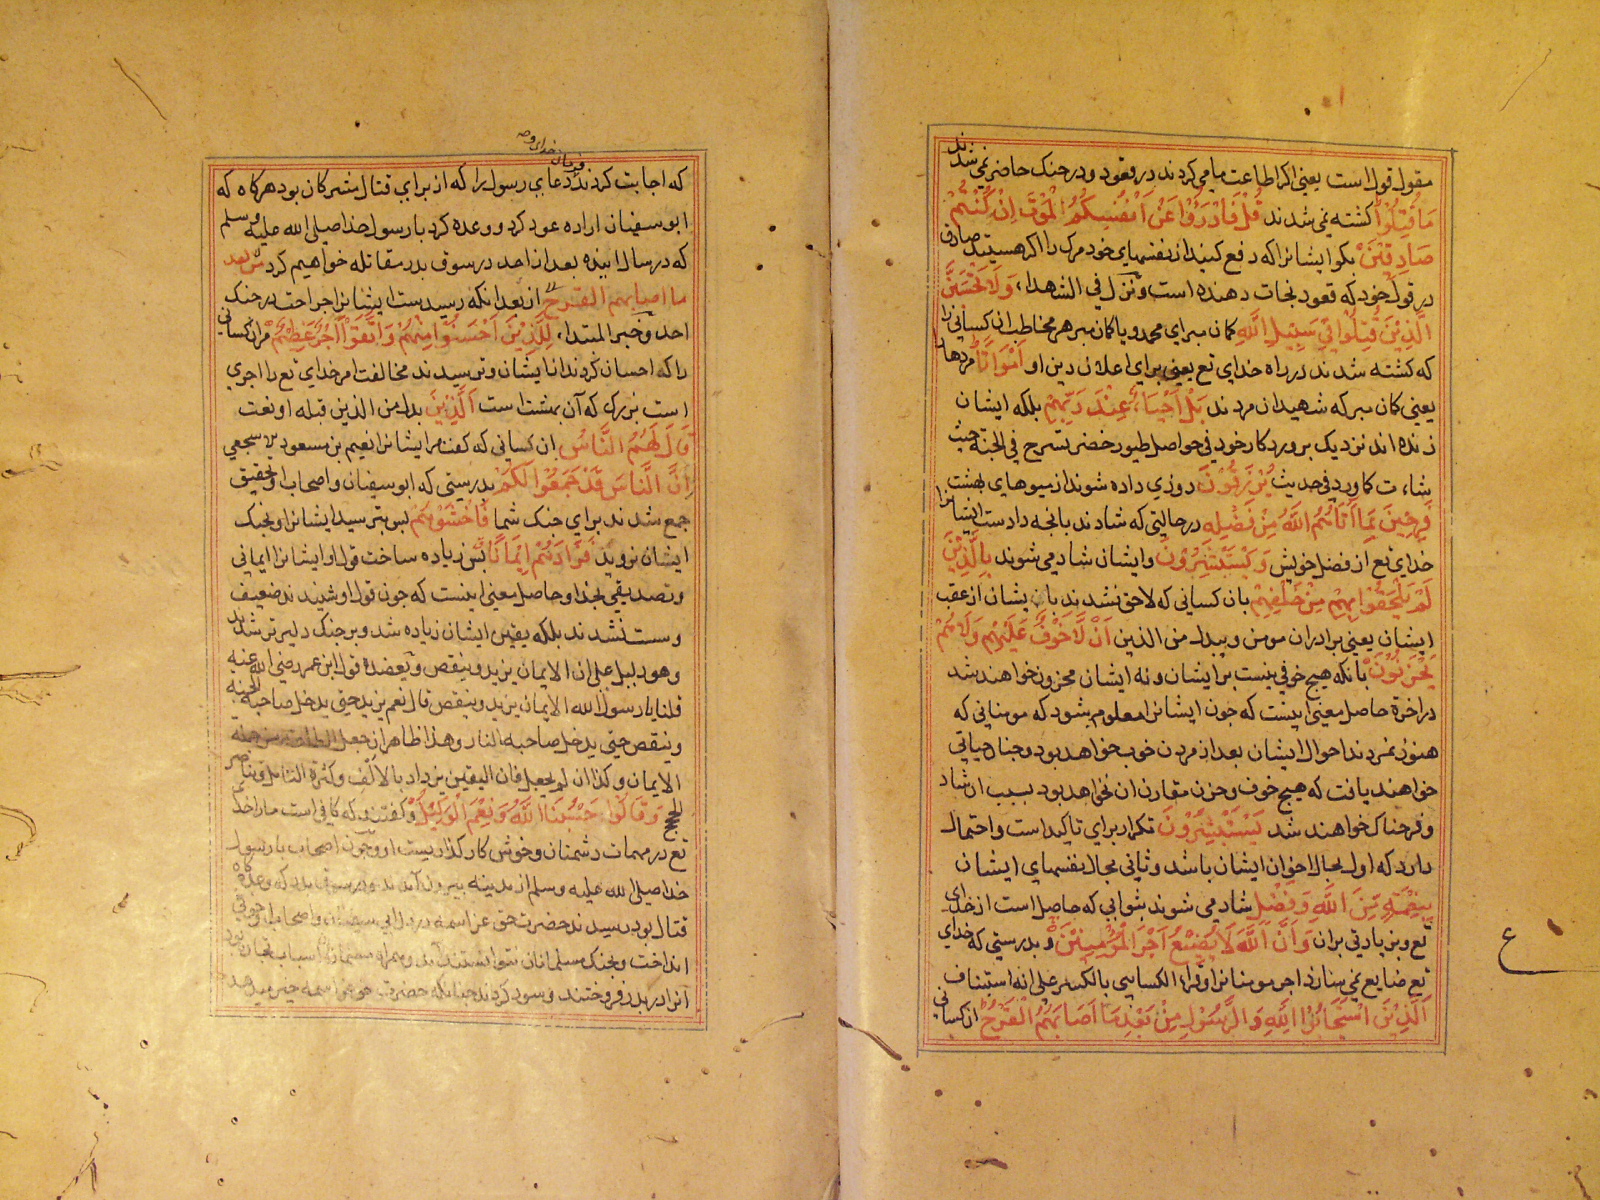 مقول قول است یعنی اکر اطاعت ما می کردند در قعود و در جنک حاضر نمی شدند
مَا قُتِلُوا کشته نمی شدند قُلْ فَادْرَؤُا عَنْ اَنْفُسِكُمُ الْمَوْتَ اِنْ كُنْتُمْ
صَادِقِيْنَ بکو ایشانرا که دفع کنید از نفسهای خود مرک را اکر هستید صادق
در قول خود که قعود نجات دهنده است و نزل فی الشهداء وَلَا تَحْسَبَنَّ
الَّذِيْنَ قُتِلُوا فِي سَبِيْلِ اللّٰهِ کمان مبرای محمد و یا کمان مبر هر مخاطب ان کسانی را
که کشته شدند در راه خدای تع یعنی برای اعلان دین او اَمْوَاتًا مردها
یعنی کمان مبر که شهیدان مردند بَلْ اَحْيَاءٌ عِنْدَ رَبِّهِمْ بلکه ایشان
زنده اند نزدیک پروردکار خود فی حواصل طیور خضر تسرح فی الجنة حیث
شاءت کما ورد فی حدیث يُرْزَقُوْنَ روزی داده شوند از میوهای بهشت
فَرِحِيْنَ بِمَا اٰتَاهُمُ اللّٰهُ مِنْ فَضْلِهِ در حالتی که شادند بانچه داد است ایشانرا
خدای تع از فضل خویش وَيَسْتَبْشِرُوْنَ و ایشان شاد می شوند بِالَّذِيْنَ
لَمْ يَلْحَقُوا بِهِمْ مِنْ خَلْفِهِمْ بان کسانی که لاحق نشدند بایشان از عقب
ایشان یعنی برادران مومن و یبدل من الذین اَنْ لَّا خَوْفٌ عَلَيْهِمْ وَلَا هُمْ
يَحْزَنُوْنَ بانکه هیچ خوفی نیست بر ایشان و نه ایشان محزون خواهند شد
در اخرة حاصل معنی اینست که جون ایشانرا معلوم شود که مومنانی که
هنوز نمردند احوال ایشان بعد از مردن خوب خواهد بود و جنان حیاتی
خواهند یافت که هیچ خوف و حزن مقارن ان نخواهد بود بسبب ان شاد
و فرحناک خواهند شد يَسْتَبْشِرُوْنَ تکرار برای تاکید است و احتمال
دارد که اول بحال اخوان ایشان باشد و ثانی بحال نفسهای ایشان
بِنِعْمَةٍ مِّنَ اللّٰهِ وَفَضْلٍ شاد می شوند بثوابی که حاصل است از خدای
تع و بزیادتی بران وَاَنَّ اللّٰهَ لَا يُضِيْعُ اَجْرَ الْمُؤْمِنِيْنَ و بدرستی که خدای
تع ضایع نمی سازد اجر مومنانرا و قراء الکسایی بالکسر علی انه استیناف
اَلَّذِيْنَ اسْتَجَابُوْا لِلّٰهِ وَالرَّسُوْلِ مِنْ بَعْدِ مَا اَصَابَهُمُ الْقَرْحُ ان کسانی
ع
فرمان خدای و
که اجابت کردند دعای رسول را که از برای قتال مشرکان بود هرکاه که
ابوسفیان اراده عود کرد و وعده کرد با رسول خدا صلی الله علیه وسلم
که در سال اینده بعد از احد در سوق بدر مقاتله خواهیم کرد من بعد
ما اصابهم القرح از بعد انکه رسیدست ایشانرا جراحت در جنک
احد و خبر المبتداء لِلَّذِيْنَ اَحْسَنُوْا مِنْهُمْ وَاتَّقَوْا اَجْرٌ عَظِيْمٌ مر ان کسانی
را که احسان کردند از ایشان و ترسیدند مخالفت امر خدای تع را اجری
است بزرک که آن بهشت است اَلَّذِيْنَ بدل من الذین قبله او نعت
قَالَ لَهُمُ النَّاسُ ان کسانی که کفت مر ایشانرا نعیم بن مسعود اشجعی
اِنَّ النَّاسَ قَدْ جَمَعُوْا لَكُمْ بدرستی که ابوسفیان و اصحاب او بتحقیق
جمع شدند برای جنک شما فَاخْشَوْهُمْ پس بترسید ایشانرا و بجنک
ایشان نروید فَزَادَهُمْ اِيْمَانًا پس زیاده ساخت قول او ایشانرا ایمانی
و تصدیقی بخدا و حاصل معنی اینست که جون قول او شنیدند ضعیف
و سست نشدند بلکه یقین ایشان زیاده شد و بر جنک دلیرتر شدند
و هو دلیل علی ان الایمان یزید و ینقص و یعضده قول ابن عمر رضی الله عنه
قلنا یا رسول الله الایمان یزید و ینقص قال نعم یزید حتی یدخل صاحبه الجنة
و ینقص حتی یدخل صاحبه النار و هذا ظاهر ان جعل الطاعة من جملة
الایمان و کذا ان لم یجعل فان الیقین یزداد بالالف و کثرة التامل و تناصر
الحجج وَقَالُوْا حَسْبُنَا اللّٰهُ وَنِعْمَ الْوَكِيْلُ و کفتند که کافی است ما را خدای
تع در مهمات دشمنان و خوش کارکذاریست او و جون اصحاب با رسول
خدا صلی الله علیه وسلم از مدینه بیرون آمدند و در سوق بدر که وعدکاه
قتال بود رسیدند حضرت حق عز اسمه در دل ابی سفیان و اصحاب او خوفی
انداخت و بجنک مسلمانان نتوانستند آمد و همراه مسلمانان اسباب تجارت بود
آنرا در بدر فروختند و سود کردند جنانکه حضرت حق عز اسمه خبر میدهد